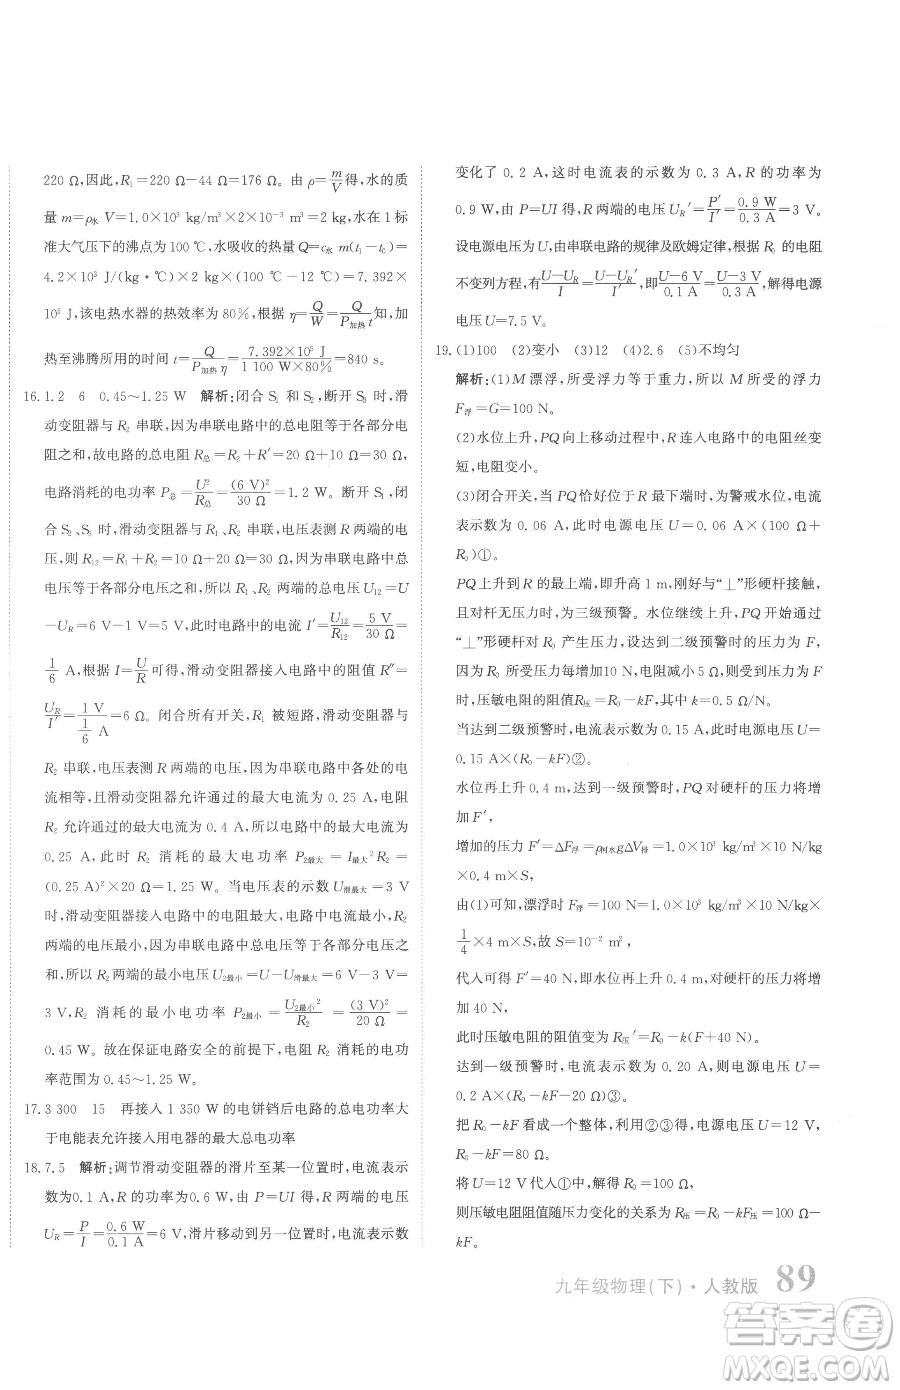 220 Ω,因此,R₁=220 Ω-44 Ω=176 Ω。由 ρ=m/V得,水的质
量 m=ρ水 V=1.0×10³ kg/m³×2×10⁻³ m³=2 kg,水在 1 标
准大气压下的沸点为 100 ℃,水吸收的热量 Q=c水 m(t₁-t₀)=
4.2×10³ J/(kg·℃)×2 kg×(100 ℃-12 ℃)=7.392×
10⁵ J,该电热水器的热效率为 80%,根据 η=Q/W=Q/(P加热 t)可知,
加热至沸腾所用的时间 t=Q/(P加热 η)=7.392×10⁵ J/(1 100 W×80%)=840 s。
16.1.2 6 0.45~1.25 W 解析:闭合 S₁ 和 S₂,断开 S₃ 时,滑
动变阻器与 R₂ 串联,因为串联电路中的总电阻等于各部分电
阻之和,故电路的总电阻 R总=R₂+R′=20 Ω+10 Ω=30 Ω,
电路消耗的电功率 P总=U²/R总=(6 V)²/30 Ω=1.2 W。断开 S₁,闭
合 S₂、S₃ 时,滑动变阻器与 R₁、R₂ 串联,电压表测 R 两端的电
压,则 R₁₂=R₁+R₂=10 Ω+20 Ω=30 Ω,因为串联电路中总
电压等于各部分电压之和,所以 R₁、R₂ 两端的总电压 U₁₂=U
-U_R=6 V-1 V=5 V,此时电路中的电流 I′=U₁₂/R₁₂=5 V/30 Ω=
1/6 A,根据 I=U/R可得,滑动变阻器接入电路中的阻值 R″=
U_R/I′=1 V/(1/6 A)=6 Ω。闭合所有开关,R₁ 被短路,滑动变阻器与
R₂ 串联,电压表测 R 两端的电压,因为串联电路中各处的电
流相等,且滑动变阻器允许通过的最大电流为 0.25 A,电阻
R₂ 允许通过的最大电流为 0.4 A,所以电路中的最大电流为
0.25 A,此时 R₂ 消耗的最大电功率 P₂最大=I最大²R₂=
(0.25 A)²×20 Ω=1.25 W。当电压表的示数 U滑最大=3 V
时,滑动变阻器接入电路中的电阻最大,电路中的电流最小,R₂
两端的电压最小,因为串联电路中总电压等于各部分电压之
和,所以 R₂ 两端的最小电压 U₂最小=U-U滑最大=6 V-3 V=
3 V,R₂ 消耗的最小电功率 P₂最小=U₂最小²/R₂=(3 V)²/20 Ω=
0.45 W。故在保证电路安全的前提下,R₂ 消耗的电功
率范围为 0.45~1.25 W。
17.3 300 15 再接入 1 350 W 的电饼铛后电路的总电功率大
于电能表允许接入用电器的最大总电功率
18.7.5 解析:调节滑动变阻器的滑片至某一位置时,电流表示
数为0.1 A,R 的功率为0.6 W,由 P=UI 得,R 两端的电压
U_R=P/I=0.6 W/0.1 A=6 V,滑片移动到另一位置时,电流表示数
变化了 0.2 A,这时电流表的示数为 0.3 A,R 的功率为
0.9 W,由 P=UI 得,R 两端的电压 U_R′=P′/I′=0.9 W/0.3 A=3 V。
设电源电压为U,由串联电路的规律及欧姆定律,根据 R₀ 的电阻
不变列方程,有(U-U_R)/I=(U-U_R′)/I′,即(U-6 V)/0.1 A=(U-3 V)/0.3 A,解得电源
电压U=7.5 V。
19.(1)100 (2)变小 (3)12 (4)2.6 (5)不均匀
解析:(1)M 漂浮,所受的浮力等于重力,所以 M 所受的浮力
F浮=G=100 N。
(2)水位上升,PQ向上移动过程中,R 连入电路中的电阻丝变
短,电阻变小。
(3)闭合开关,当 PQ恰好在 R 最下端时,为警戒水位,电流
表示数为 0.06 A,此时电源电压 U=0.06 A×(100 Ω+
R₀)①。
PQ上升到 R 的最上端,即水位升高 1 m,刚好与“⊥”形硬杆接触,
且对硬杆无压力时,为三级预警。水位继续上升,PQ 开始通过
“⊥”形硬杆对 R₀ 产生压力,设达到二级预警时的压力为 F,
因为 R₀ 所受压力每增加10 N,电阻减小 5 Ω,则当压力为 F
时,压敏电阻的阻值R压=R₀-kF,其中 k=0.5 Ω/N。
当达到二级预警时,电流表示数为 0.15 A,此时电源电压 U=
0.15 A×(R₀-kF)②。
水位再上升 0.4 m,达到一级预警时,PQ对硬杆的压力将增
加F′,
增加的压力 F′=ΔF浮=ρ河水gΔV排=1.0×10³ kg/m³×10 N/kg
×0.4 m×S,
由(1)可知,漂浮时 F浮=100 N=1.0×10³ kg/m³×10 N/kg×
1/4×4 m×S,故 S=10⁻² m²,
代入可得 F′=40 N,即水位再上升 0.4 m,对硬杆的压力将增
加 40 N,
此时压敏电阻的阻值变为 R₀-k(F+40 N),
达到一级预警时,电流表示数为 0.20 A,则电源电压 U=
0.2 A×[R₀-k(F+40 N)]③。
把 R₀-kF 看成一个整体,由②③可以解得电源电压U=12 V,
R₀-kF=80 Ω。
将 U=12 V代入①可得,R₀=100 Ω。
则压敏电阻阻值随压力变化的关系为 R压=R₀-kF=100 Ω-
kF。
九年级物理(下)·人教版 89
答案卷
MXQE.COM